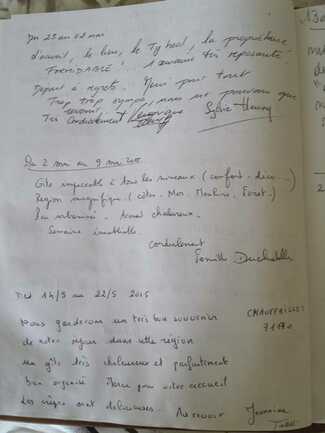 Du 25 au 02 mai
d'accueil, le lieu, le Ty bed, la propriétaire
FORMIDABLE! 1 semaine très reposante!
Départ à regrets. Merci pour tout
Trop trop sympa, nous ne pouvons que
revenir!
Très Cordialement
Sylvie
Du 2 mai au 9 mai
Gîte impeccable à tous les niveaux (confort - déco ...)
Région magnifique (côtes - Mer, Moulins, Forêt.)
Peu urbanisé - Accueil chaleureux.
Semaine inoubliable.
Cordialement
Famille
Du 14/5 au 22/5 2015
CHAUFFAILLES
71170
Nous garderons un très bon souvenir
de notre séjour dans votre région
un gîte très chaleureux et parfaitement
bien organisé Merci pour votre accueil
Les crêpes sont délicieuses. Au revoir Jeannine
13a
2